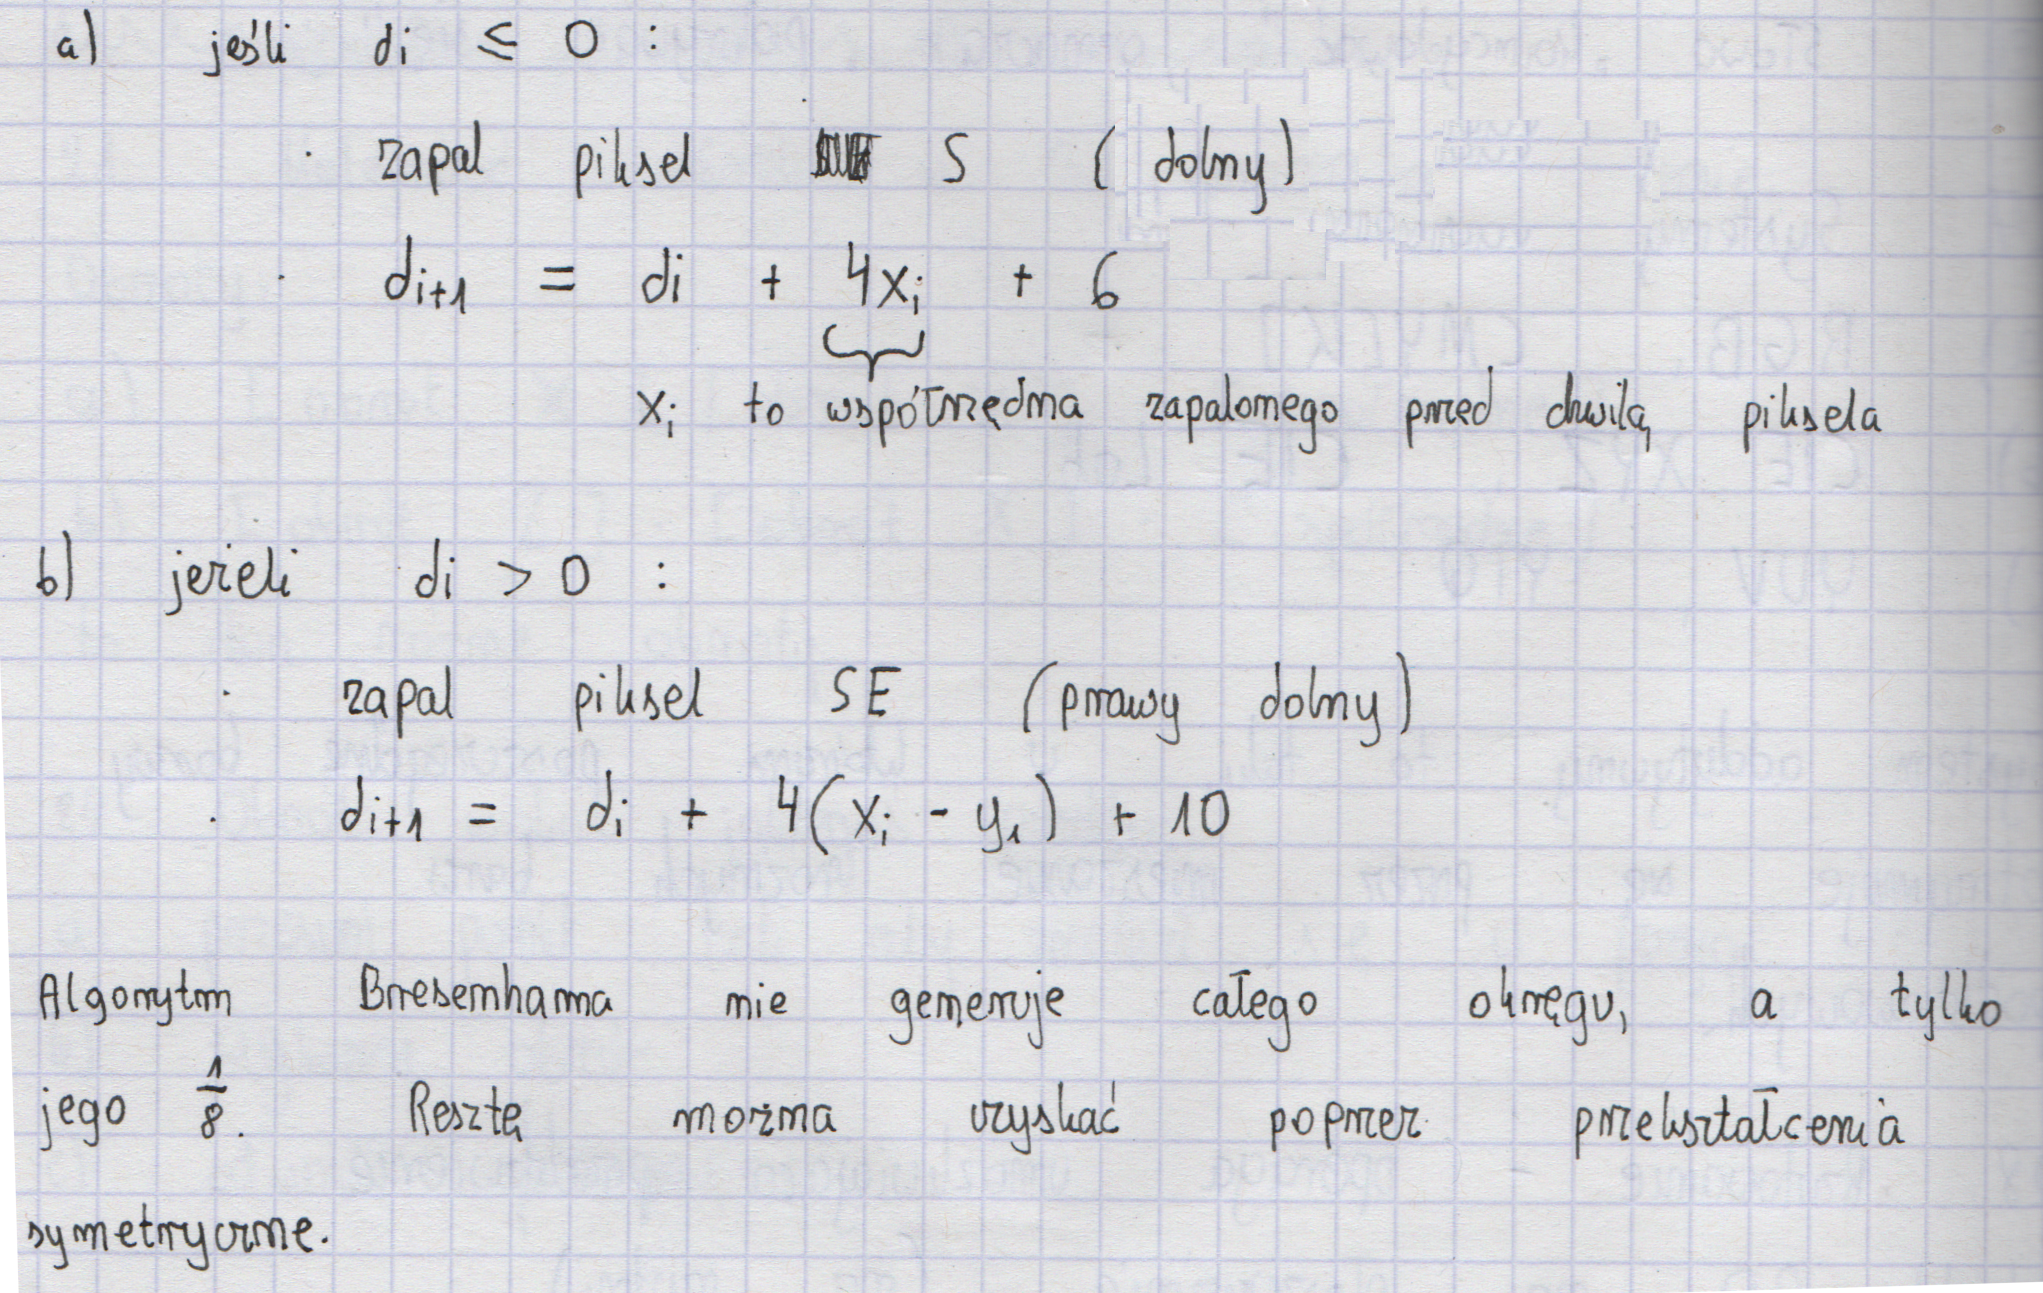 a) jeśli di ≤ 0 :
· zapal piksel S (dolny)
· di+1 = di + 4xi + 6
xi to współrzędna zapalonego przed chwilą piksela
b) jeżeli di > 0 :
· zapal piksel SE (prawy dolny)
· di+1 = di + 4(xi - y1) + 10
Algorytm Bresenhama nie generuje całego okręgu, a tylko
jego 1/8. Resztę można uzyskać poprzez przekształcenia
symetryczne.